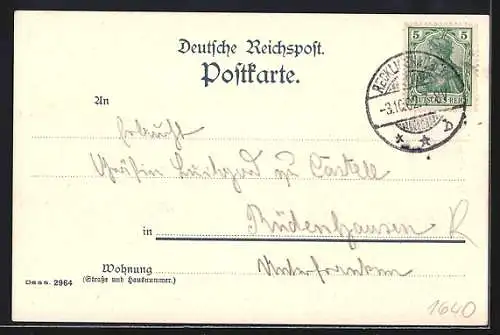 Deutsche Reichspost.
Postkarte.
5 5
RECKLINGHAUSEN
-3.10.02
DEUTSCHES REICH
* * b
An
Erlaucht
Gräfin Luitgard zu Castell
in Rüdenhausen
Wohnung Unterfranken
(Straße und Hausnummer.)
2964
1640